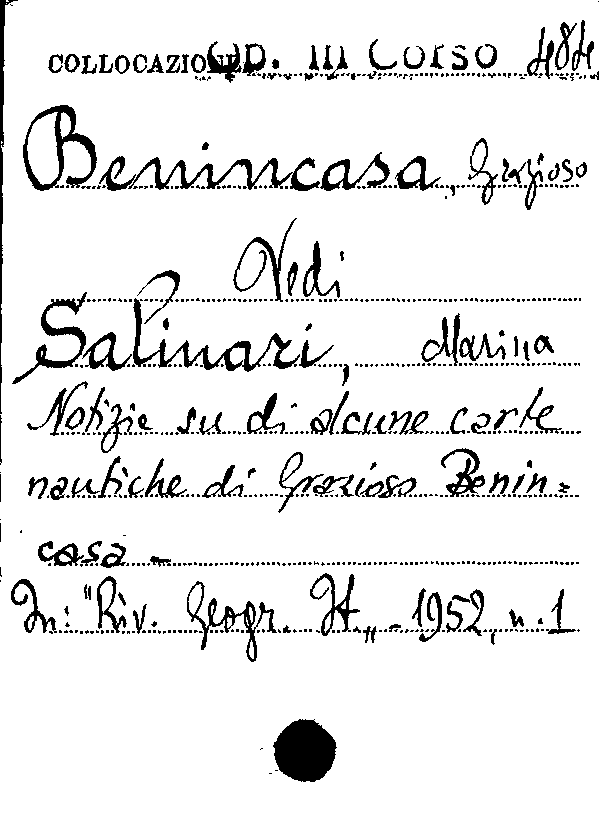 COLLOCAZIONE OD. III Corso 484
Benincasa, Grazioso
Vedi
Salinari, Marina
Notizie su di alcune carte
nautiche di Grazioso Benin=
casa -
In: "Riv. Geogr. It.„ - 1952, n. 1